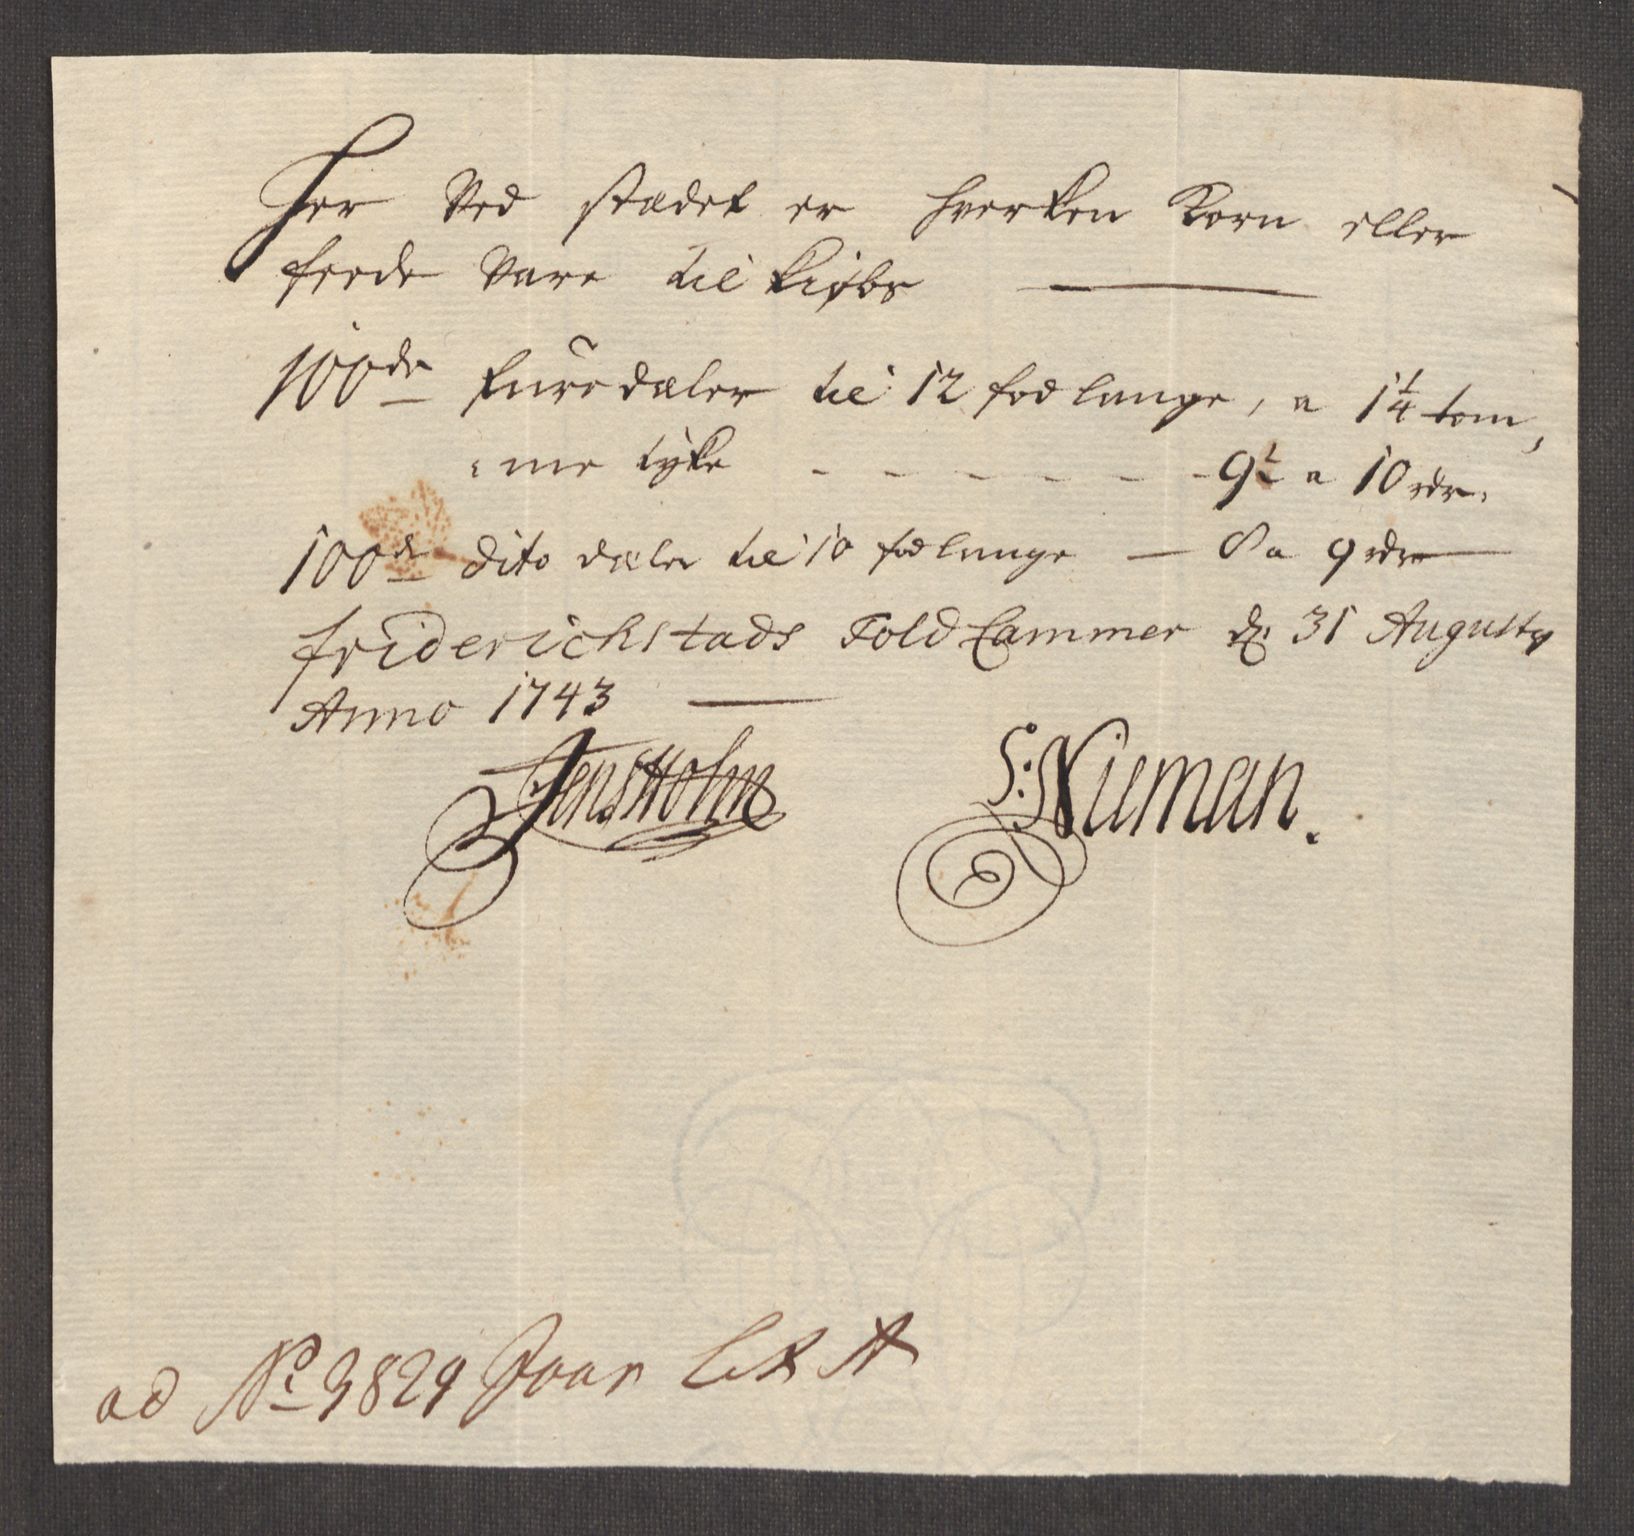 Her Ved stædet er hverken Korn eller
feede Vare til kiøbs
100de furredæler til 12 fod lange, a 1¼ tom,
me tyke - - - - - - - 9½ a 10 rdr.
100de dito dæler til 10 fod lange — 8 a 9 rdr
friderichstads Told Cammer d. 31 Augusty
Anno 1743
Jens Holm S: Niuman.
ad No 3829 Litr A